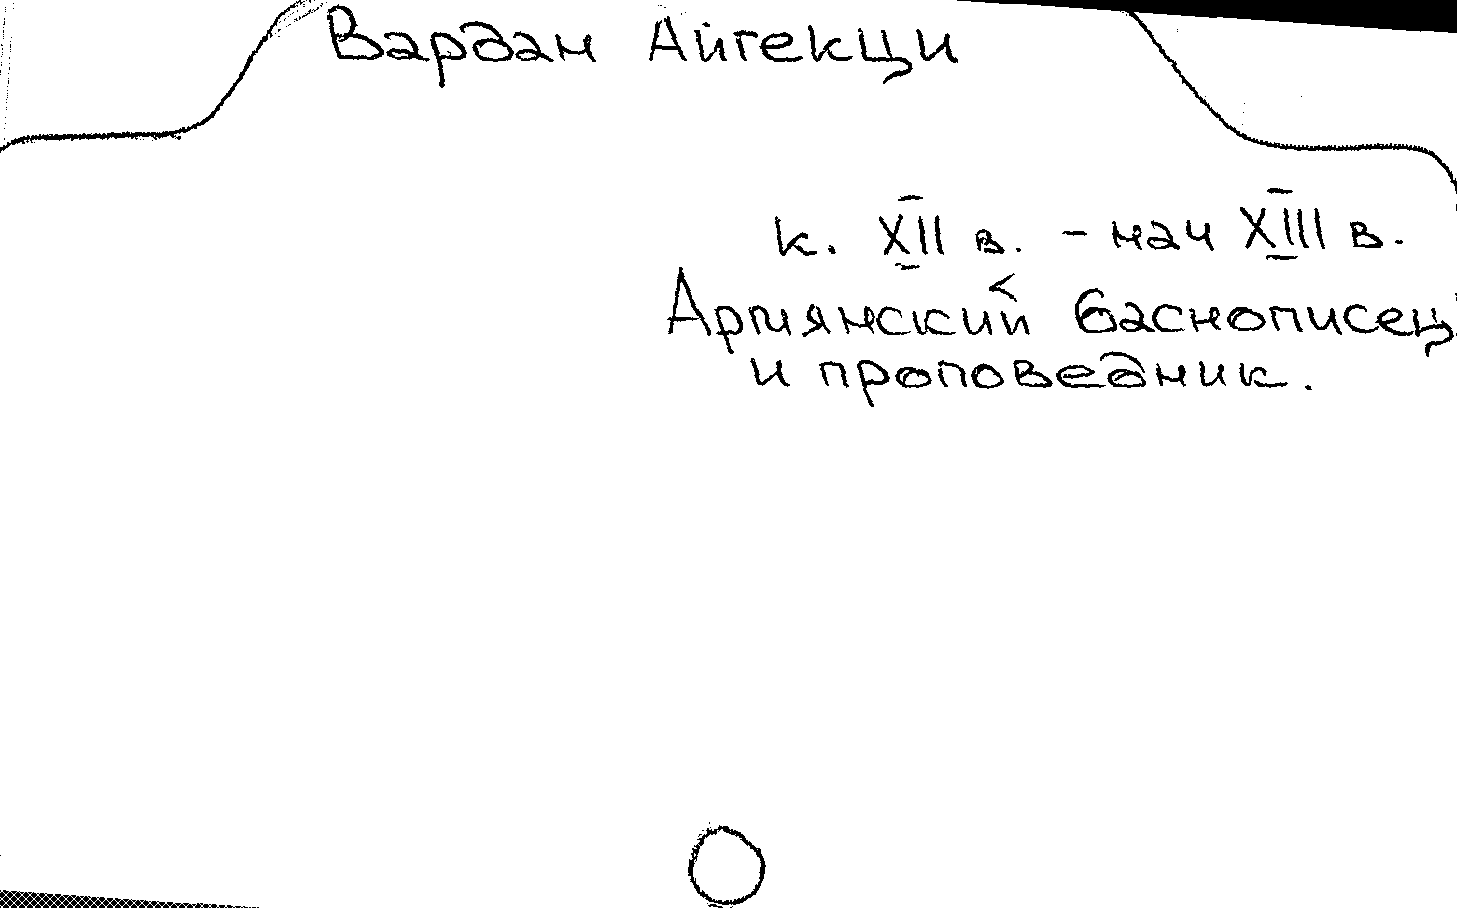 Вардан Айгекци
к. XII в. - нач XIII в.
Армянский баснописец
и проповедник.